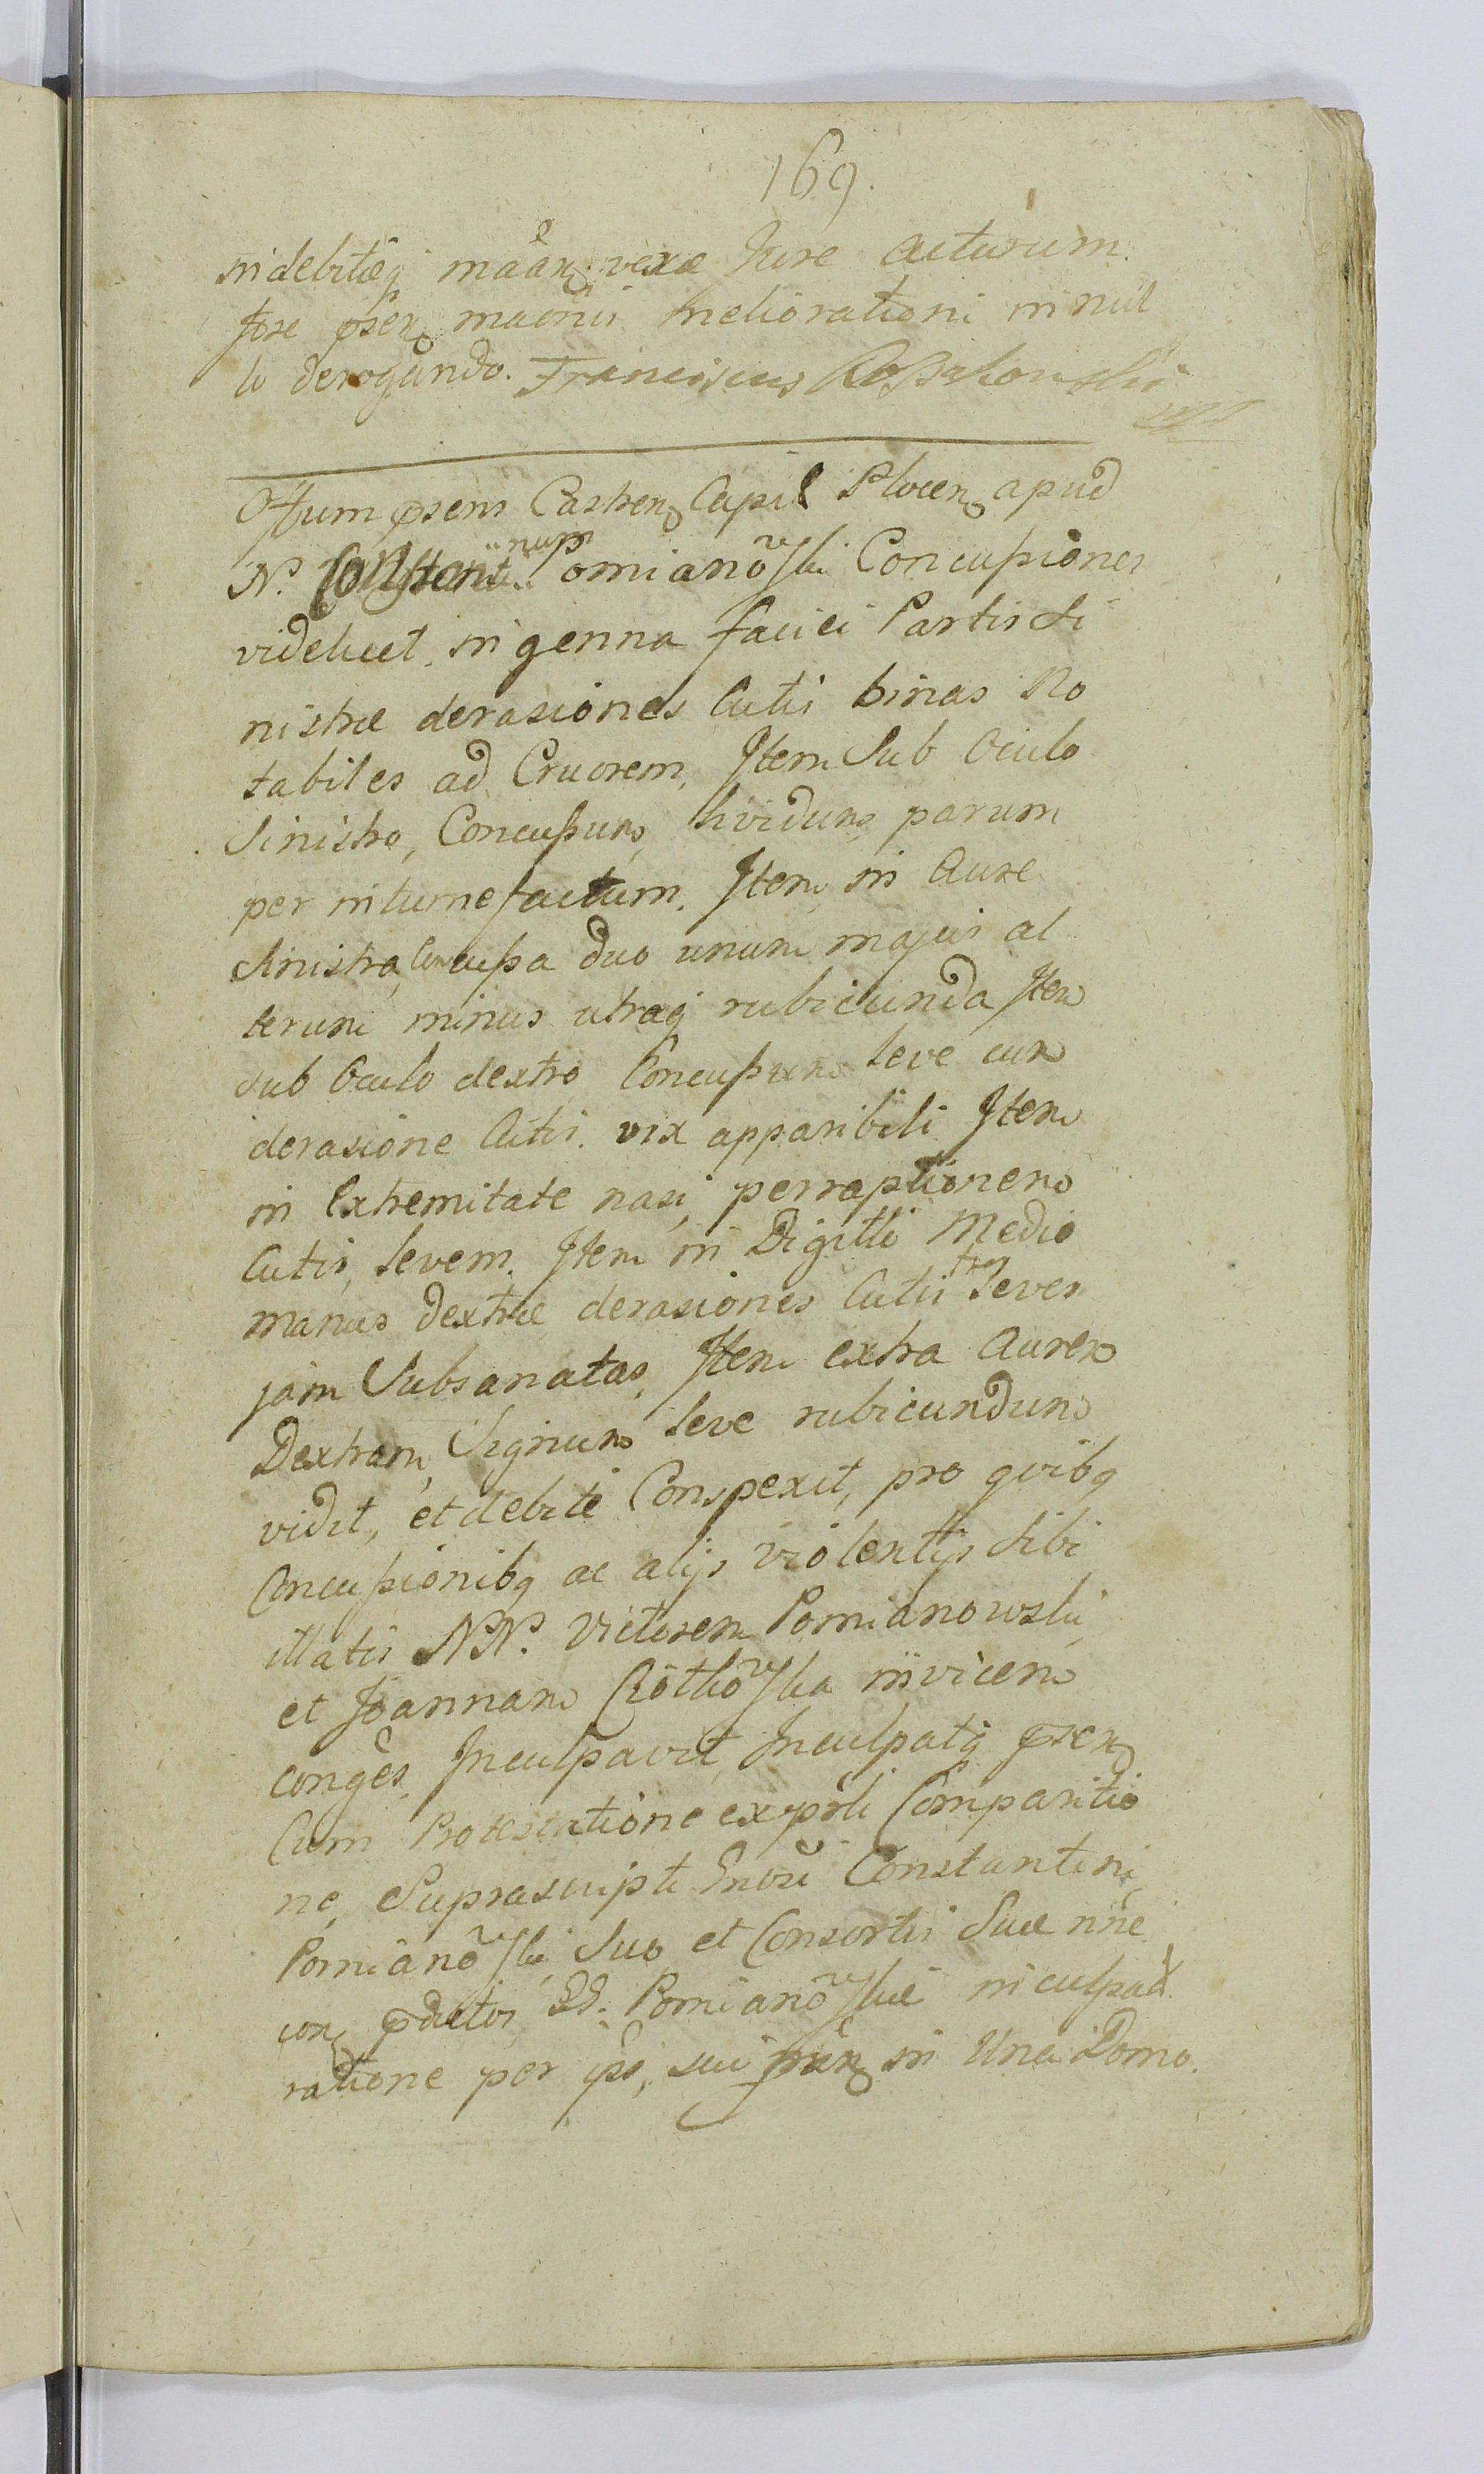 169.
indebitæq; vexæ Jure acturum.
fore psen; meliorationi in nul
lo derogando. Franciscus
Offum psens Castren; Capil Plocen; apud
N. Constantinum Pomianowski Concussiones
videlicet, in genna faciei Partis Si
nistræ derasiones Cutis binas No
tabiles ad Cruorem, Item Sub Oculo
Sinistro, Concussum, lividum, parum
per intumefactum. Item in Aure
Sinistra, Concussa duo unum majus al
terum minus utraq; rubicunda Item
sub Oculo dextro Concussum leve cum
derasione Cutis. vix apparibili Item
in Extremitate nasi, perraptionem
Cutis, levem. Item in Digitti Medio
manus dextræ derasiones Cutis tres leves
jam Subsanatas, Item extra Aurem
Dextram, Signum leve rubicundum
vidit, et debite Conspexit, pro quibq
Concussionibq ac alijs violentijs sibi
illatis NN. Victorem Pomianowski
et Joannam invicem
conges, Inculpavit, Inculpatq psen;
Cum Protestatione ex psli Comparitio
ne, Suprascripti Gnosi Constantini
Pomianowski, Suo et Consortis Suæ nne
con; pdictos GG. Pomianowskie inculpat
ratione per ips, sui in Una Domo.